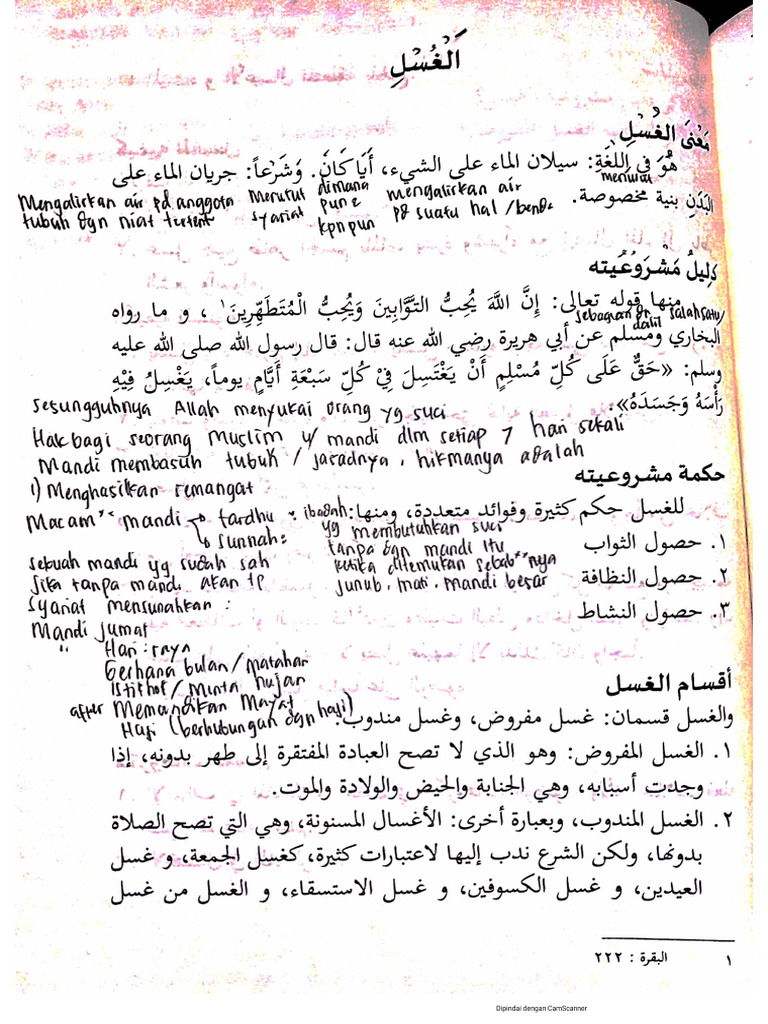 اَلْغُسْلِ
مَعْنَى الغُسْلِ
هُوَ فِي اللُّغَةِ: سيلان الماء على الشيء، أَيًا كَانَ. وَشَرْعاً: جريان الماء على
menurut
Mengalirkan air pd anggota menurut dimana mengalirkan air
البَدَنِ بنية مخصوصة.
tubuh dgn niat tertentu syariat pun kpnpun pd suatu hal / benda
دَلِيلُ مَشْرُوعُيَّته
منها قوله تعالى: إِنَّ اللَّهَ يُحِبُّ التَّوَّابِينَ وَيُحِبُّ الْمُتَطَهِّرِينَ ١، و ما رواه
sebagian dr salah satu / dalil
البخاري ومسلم عن أبي هريرة رضي الله عنه قال: قال رسول الله صلى الله عليه
وسلم: «حَقٌّ عَلَى كُلِّ مُسْلِمٍ أَنْ يَغْتَسِلَ فِيْ كُلِّ سَبْعَةِ أَيَّامٍ يوماً، يَغْسِلُ فِيْهِ
رَأْسَهُ وَجَسَدَهُ».
Sesungguhnya Allah menyukai orang yg suci
Hak bagi seorang Muslim u/ mandi dlm setiap 7 hari sekali
Mandi membasuh tubuh / jasadnya, hikmanya adalah
حكمة مشروعيته
1) Menghasilkan semangat
للغسل حكم كثيرة وفوائد متعددة، ومنها:
Macam" mandi → fardhu : ibadah yg membutuhkan suci
١. حصول الثواب
↳ sunnah: tanpa dgn mandi itu
sebuah mandi yg sudah sah ketika ditemukan sebab"nya
٢. حصول النظافة
Jika tanpa mandi akan tp junub, mati, mandi besar
٣. حصول النشاط
syariat mensunahkan :
Mandi jumat
" Hari raya
Gerhana bulan / matahari
أقسام الغسل
Istisho / Minta hujan
after Memandikan Mayat
والغسل قسمان: غسل مفروض، وغسل مندوب.
Haji (berhubungan dgn haji)
١. الغسل المفروض: وهو الذي لا تصح العبادة المفتقرة إلى طهر بدونه، إذا
وجدت أسبابه، وهي الجنابة والحيض والولادة والموت.
٢. الغسل المندوب، وبعبارة أخرى: الأغسال المسنونة، وهي التي تصح الصلاة
بدونها، ولكن الشرع ندب إليها لاعتبارات كثيرة، كغسل الجمعة، و غسل
العيدين، و غسل الكسوفين، و غسل الاستسقاء، و الغسل من غسل
١ البقرة : ٢٢٢
Dipindai dengan CamScanner